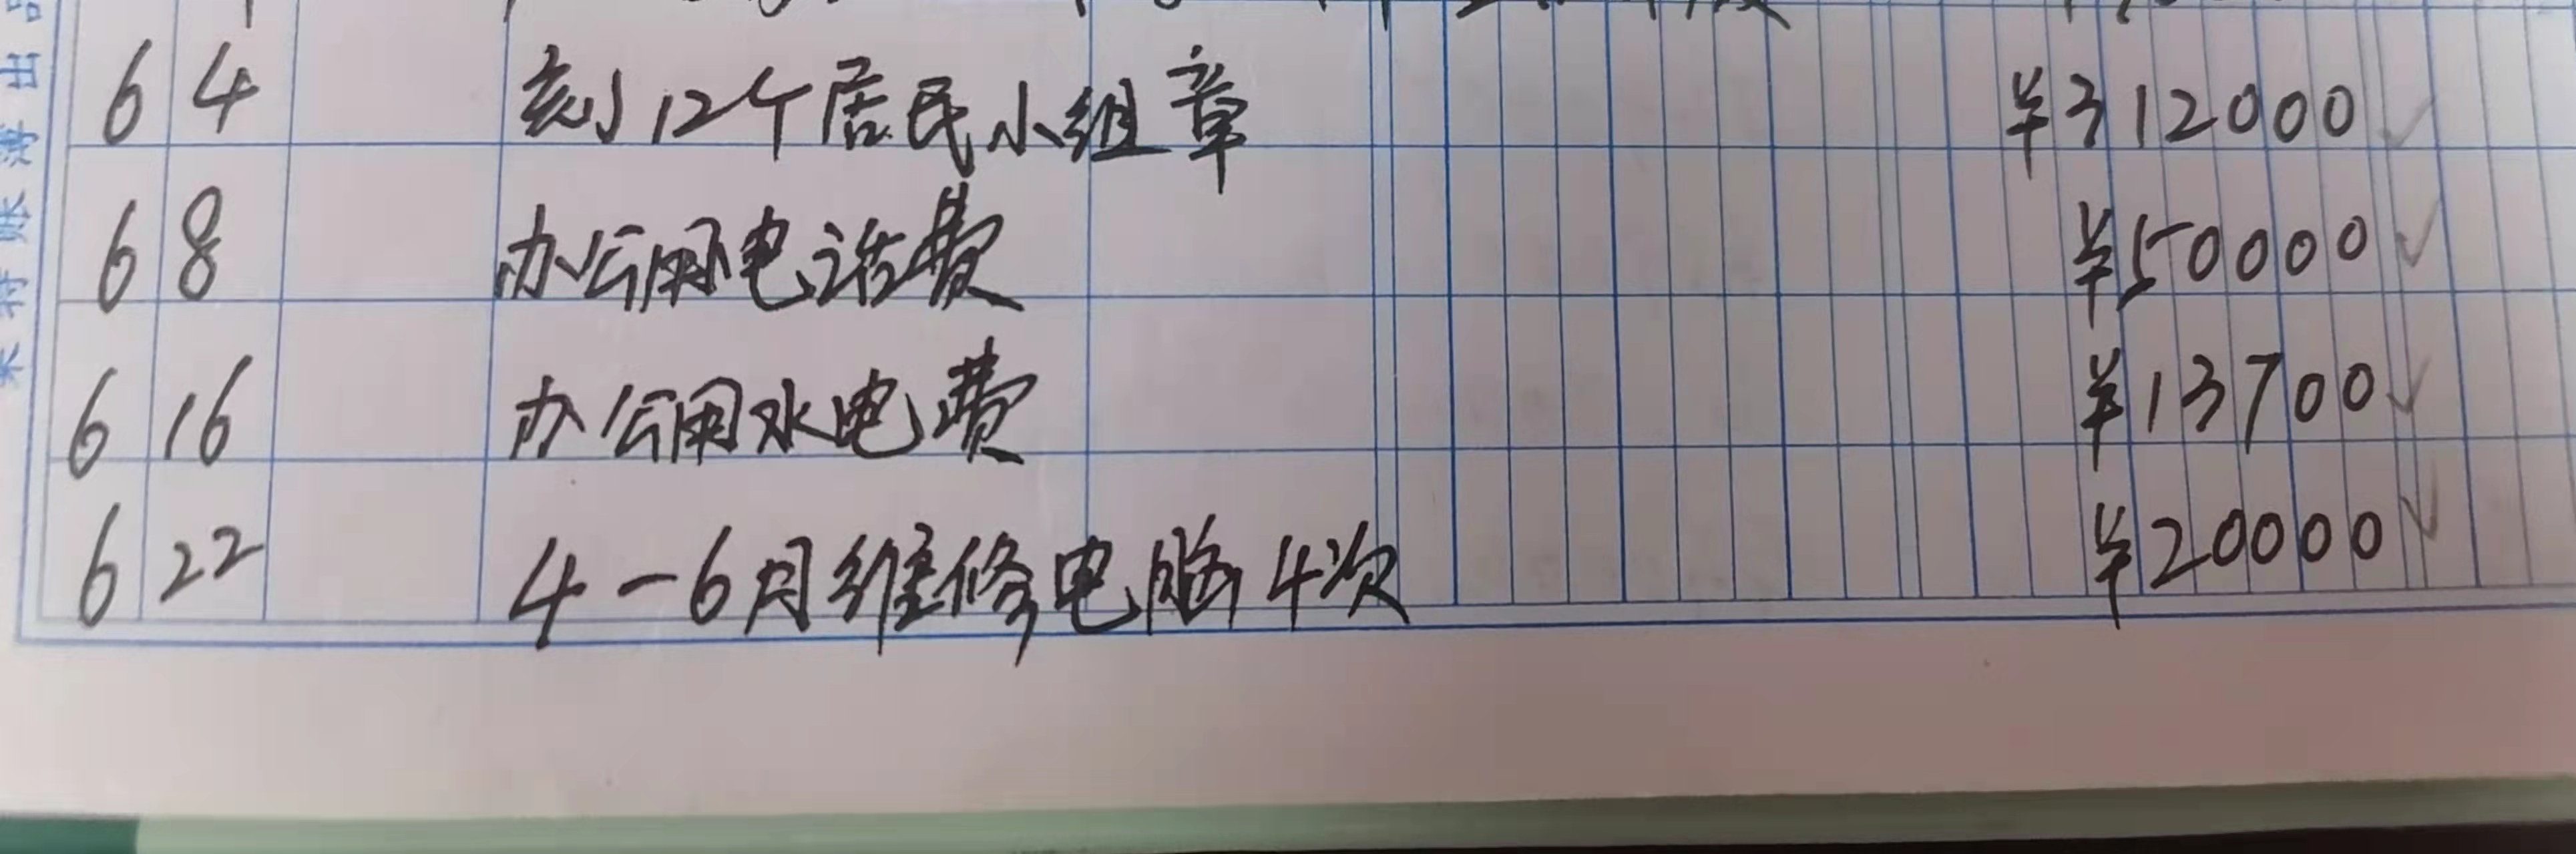 6 4 刻12个居民小组章 ¥312000
6 8 办公用电话费 ¥50000
6 16 办公用水电费 ¥13700
6 22 4-6月维修电脑4次 ¥20000